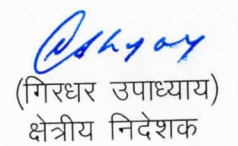 (गिरधर उपाध्याय)
क्षेत्रीय निदेशक